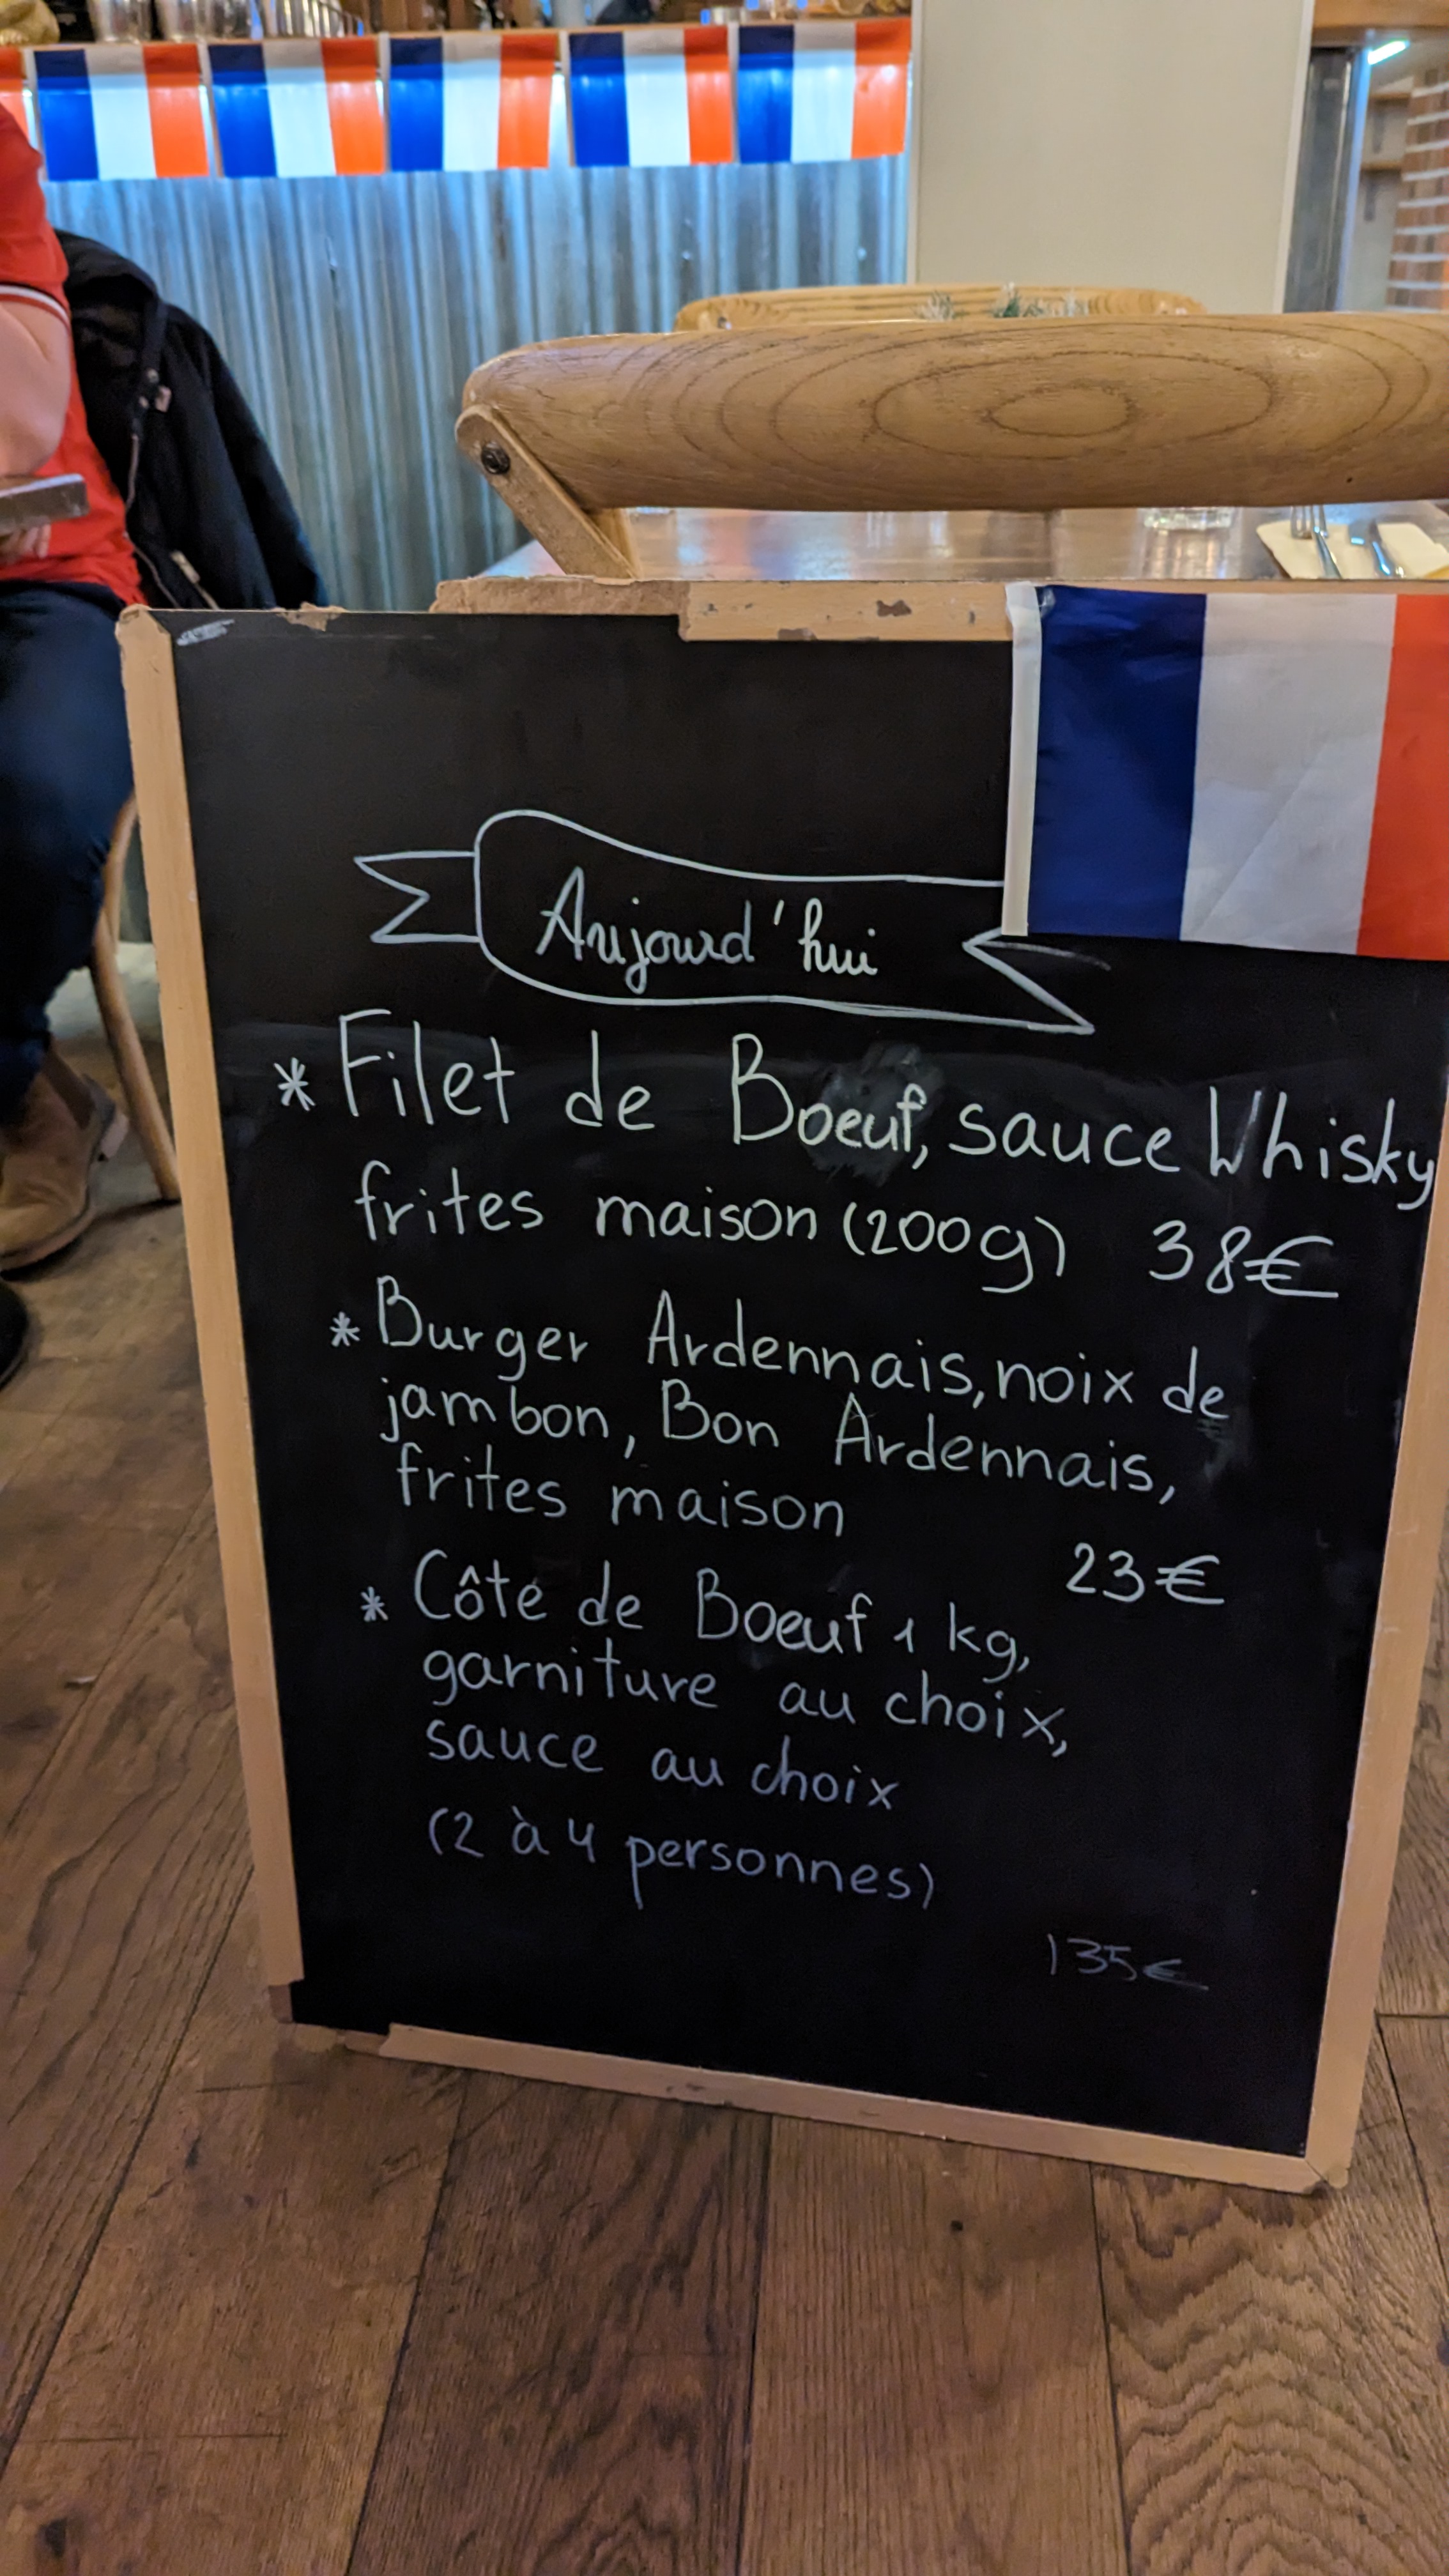 Aujourd'hui
* Filet de Boeuf, sauce Whisky
frites maison (200g) 38€
* Burger Ardennais, noix de
jambon, Bon Ardennais,
frites maison
23€
* Côte de Boeuf 1 kg,
garniture au choix,
sauce au choix
(2 à 4 personnes)
135€